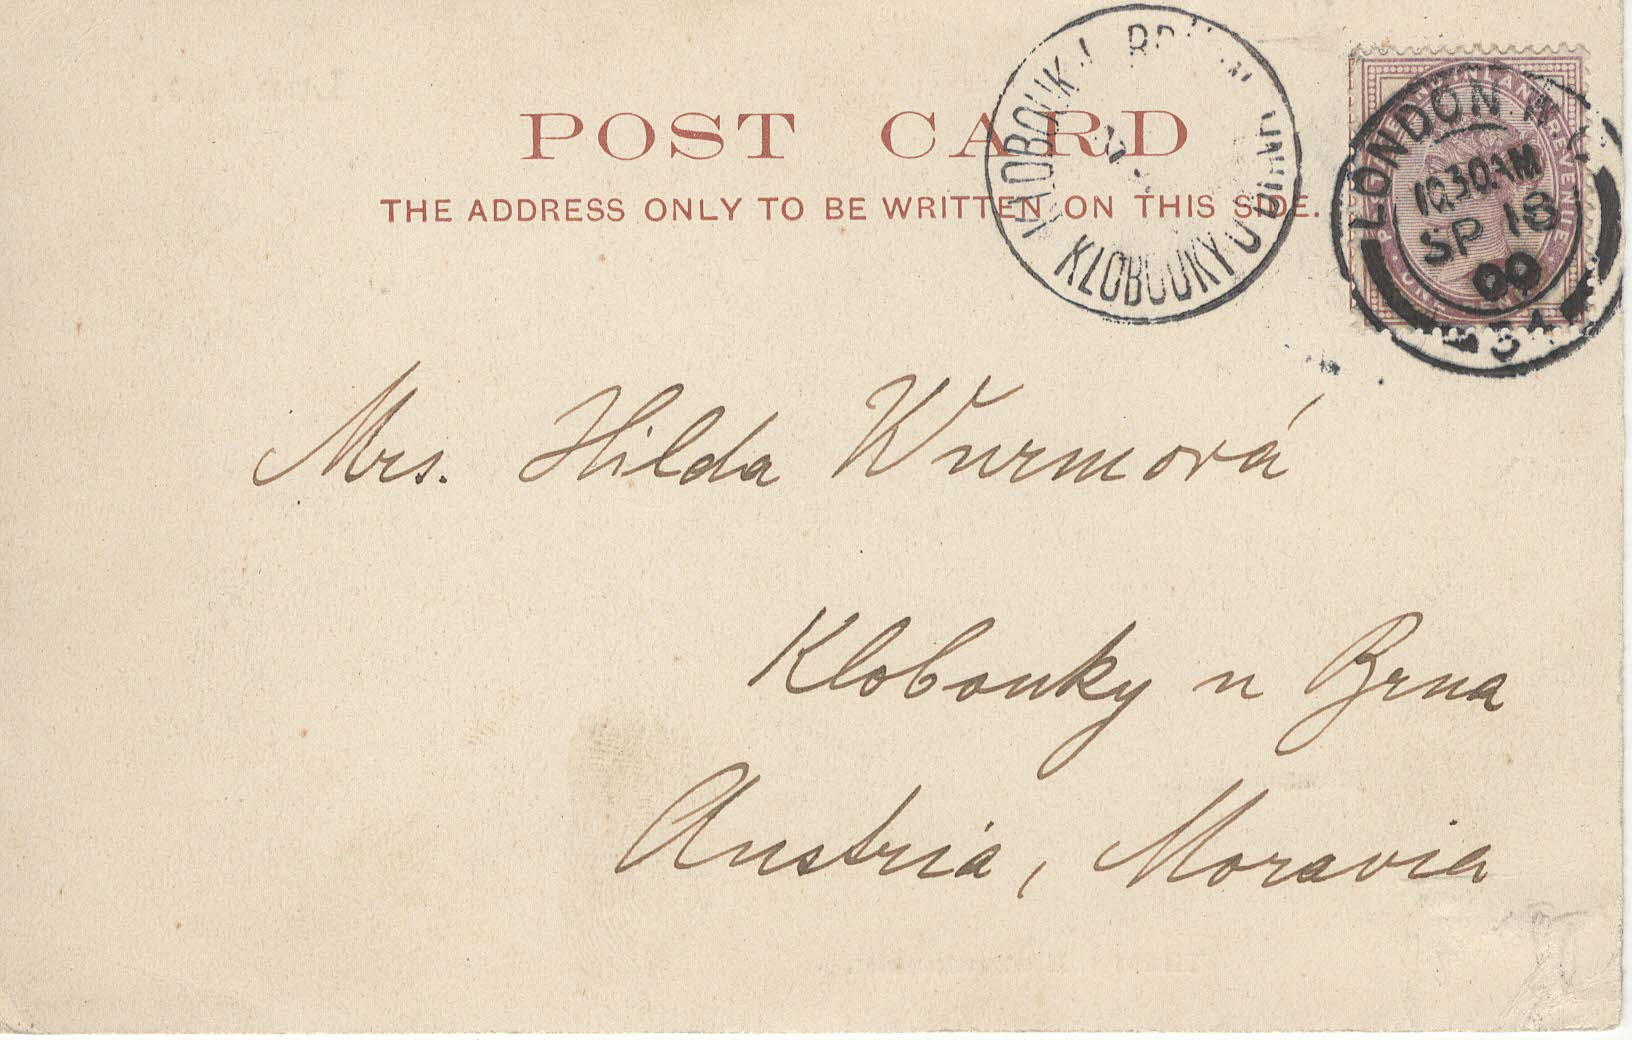 POST CARD
THE ADDRESS ONLY TO BE WRITTEN ON THIS SIDE.
KLOBOUKY U BRNA
LONDON W.C
10.30AM
SP 18
00
34
POSTAGE AND INLAND REVENUE
ONE PENNY
Mrs. Hilda Wurmová
Klobouky u Brna
Austria, Moravia